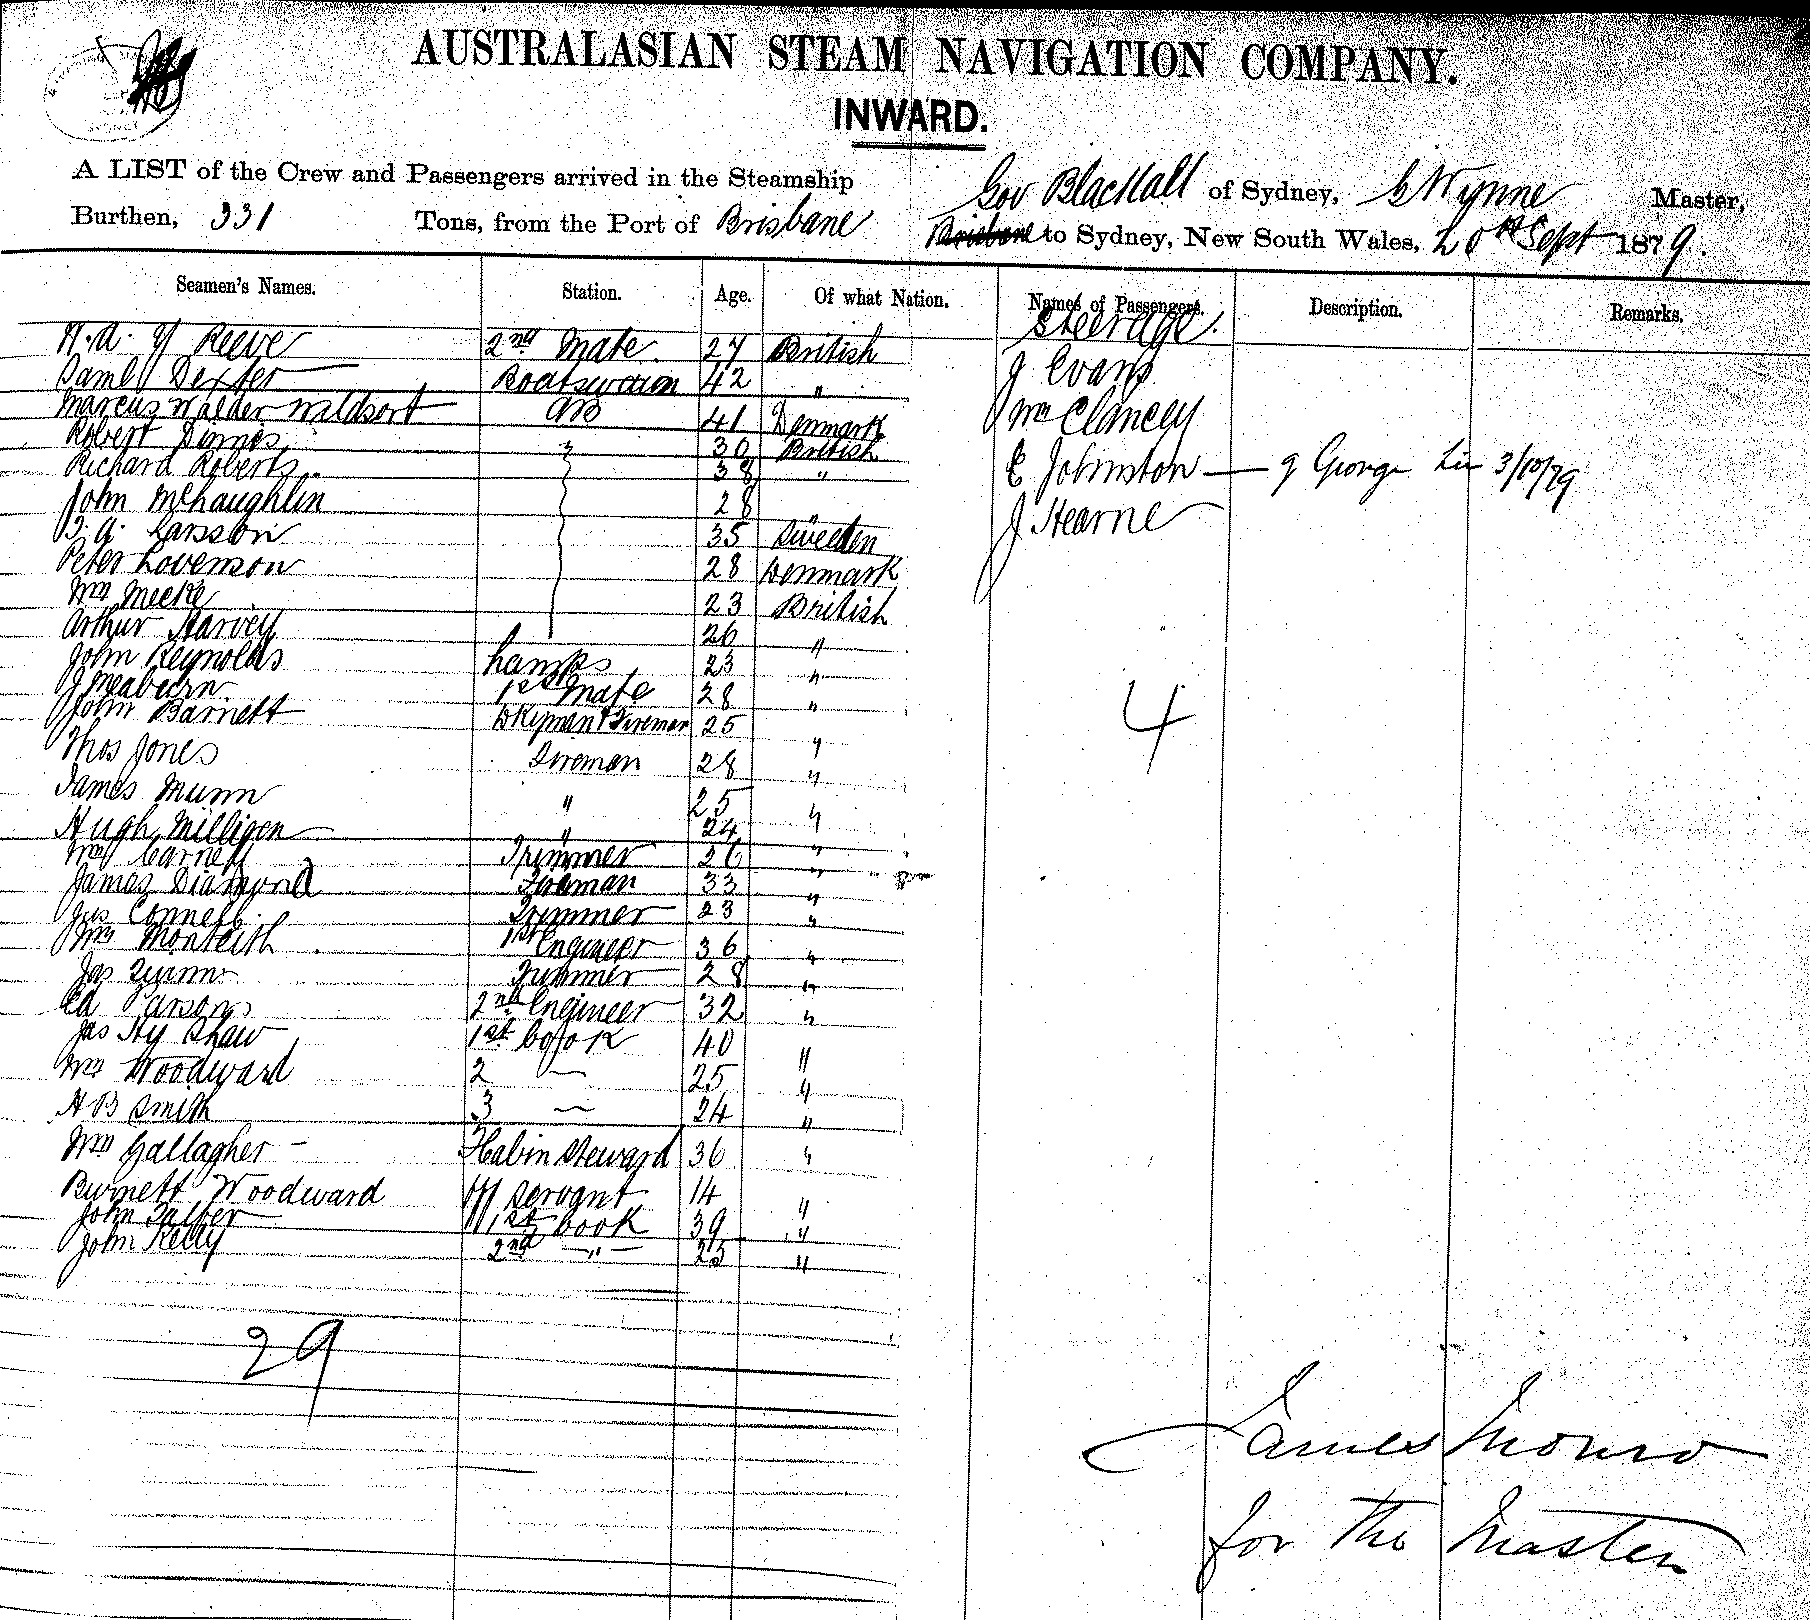 AUSTRALASIAN STEAM NAVIGATION COMPANY.
INWARD.
A LIST of the Crew and Passengers arrived in the Steamship Gov Blackall of Sydney, G Wynne Master,
Burthen, 331 Tons, from the Port of Brisbane Brisbane to Sydney, New South Wales, 20th Sept 1879.
Seamen's Names. Station. Age. Of what Nation. Names of Passengers. Description. Remarks.
Steerage.
Reeve 2nd Mate 27 British J Evans
Saml Dexter Boatswain 42 " Wm Clancey
Marcus Walder AB 41 Denmark
Robert Dimes " 30 British E Johnston — q George Lin 3/10/79
Richard Roberts 38 "
John McLaughlin 28 " J Hearne
Larsson 35 Sweden
Peter Lovenson 28 Denmark
Wm Mecke 23 British
Arthur Harvey 26 "
John Reynolds Lamps 23 "
J Meaburn 1st Mate 28 "
John Barnett Dkyman & Fireman 25 "
Thos Jones Fireman 28 "
James Munn " 25 "
Hugh Milligen " 24 "
Wm Carnell Trimmer 26 "
James Diamond Fireman 33 "
Jas Connell Trimmer 23 "
Wm Monteith 1st Engineer 36 "
Jas Quinn Trimmer 28 "
Ed Parsons 2nd Engineer 32 "
Jas Hy Shaw 1st Cook 40 "
Wm Woodward 2 — 25 "
H B Smith 3 — 24 "
Wm Gallagher - Cabin Steward 36 "
Burnett Woodward servant 14 "
John 1st Cook 39 "
John Kelly 2nd —"— 25 "
4
29
James Monro
for the Master